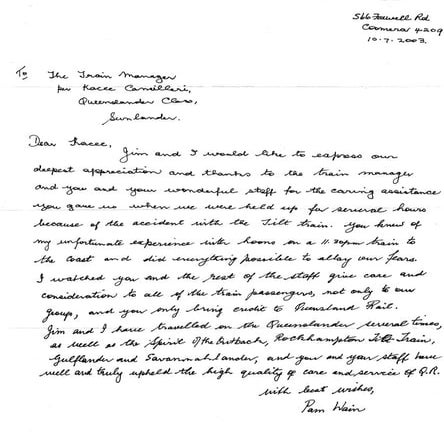 566 Foxwell Rd
Coomera 4209
10.7.2003.
To The Train Manager
per Kacee Camilleri,
Queenslander Class,
Sunlander.
Dear Kacee,
Jim and I would like to express our
deepest appreciation and thanks to the train manager
and you and your wonderful staff for the caring assistance
you gave us when we were held up for several hours
because of the accident with the Tilt train. You knew of
my unfortunate experience with hoons on a 11.30pm train to
the coast and did everything possible to allay our fears.
I watched you and the rest of the staff give care and
consideration to all of the train passengers, not only to our
group, and you only bring credit to Queensland Rail.
Jim and I have travelled on the Queenslander several times,
as well as the Spirit of the Outback, Rockhampton Tilt Train,
Gulflander and Savannahlander, and you and your staff have
well and truly upheld the high quality of care and service of Q.R.
with best wishes,
Pam Wain